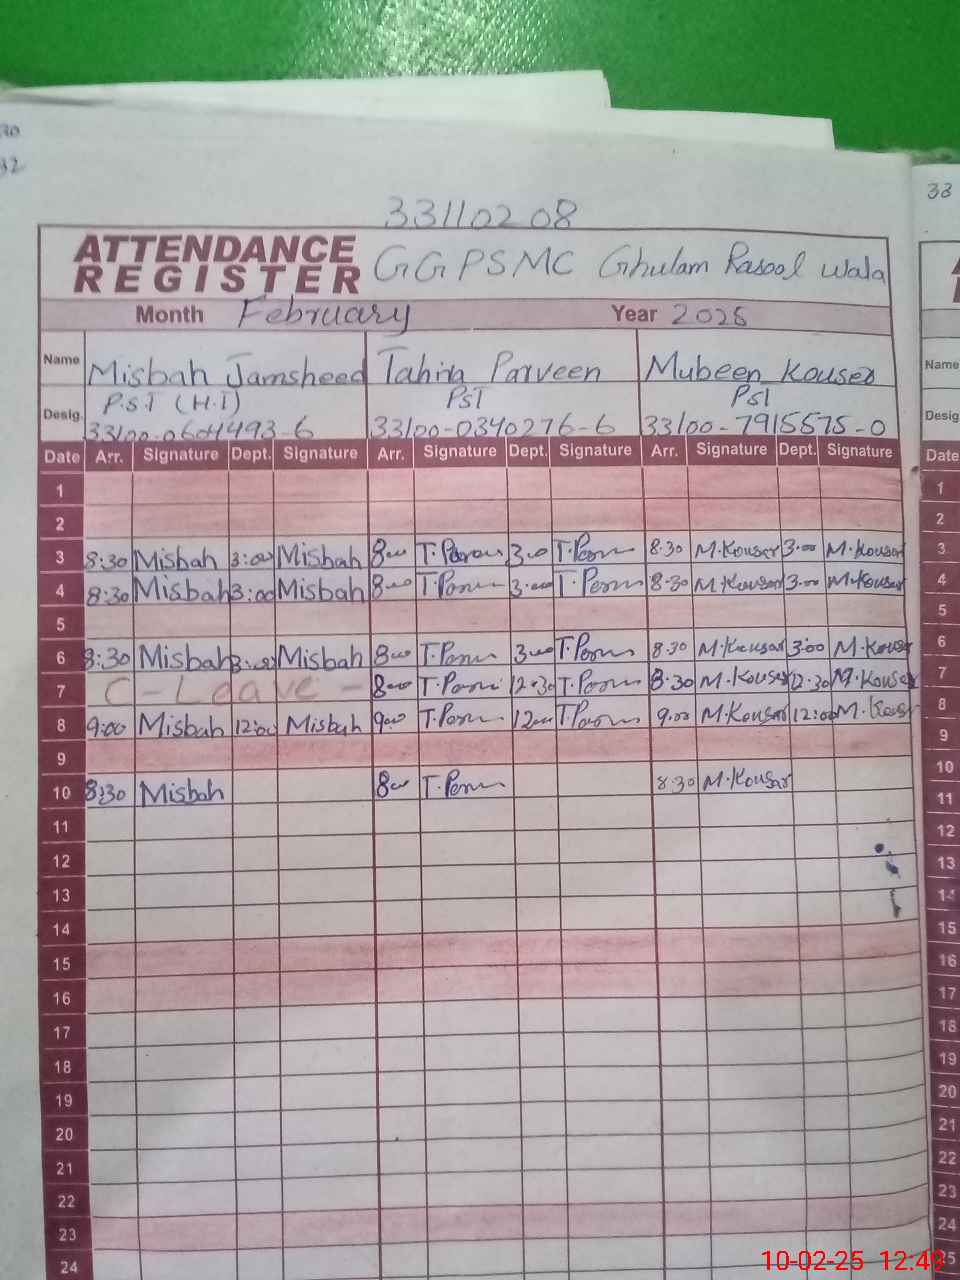 30
32
33110208
33
ATTENDANCE
REGISTER
GGPSMC Ghulam Rasool Wala
Month February Year 2025
Name Misbah Jamsheed Tahira Parveen Mubeen Kouser Name
Desig. P.S.T (H.T) PST PST Desig
33100-0601493-6 33100-0340276-6 33100-7915575-0
Date Arr. Signature Dept. Signature Arr. Signature Dept. Signature Arr. Signature Dept. Signature Date
1 1
2 2
3 8:30 Misbah 3:00 Misbah 8:00 3:00 8:30 M.Kousar 3:00 M.Kousar 3
4 8:30 Misbah 3:00 Misbah 8:00 3:00 8:30 M.Kousar 3:00 M.Kousar 4
5 5
6 8:30 Misbah 3:00 Misbah 8:00 3:00 8:30 M.Kousar 3:00 M.Kousar 6
7 C-Leave- 8:00 12:30 8:30 M.Kousar 12:30 M.Kousar 7
8 9:00 Misbah 12:00 Misbah 9:00 12:00 9:00 M.Kousar 12:00 M.Kousar 8
9 9
10 8:30 Misbah 8:00 8:30 M.Kousar 10
11 11
12 12
13 13
14 14
15 15
16 16
17 17
18 18
19 19
20 20
21 21
22 22
23 23
24 24
10-02-25 12:49